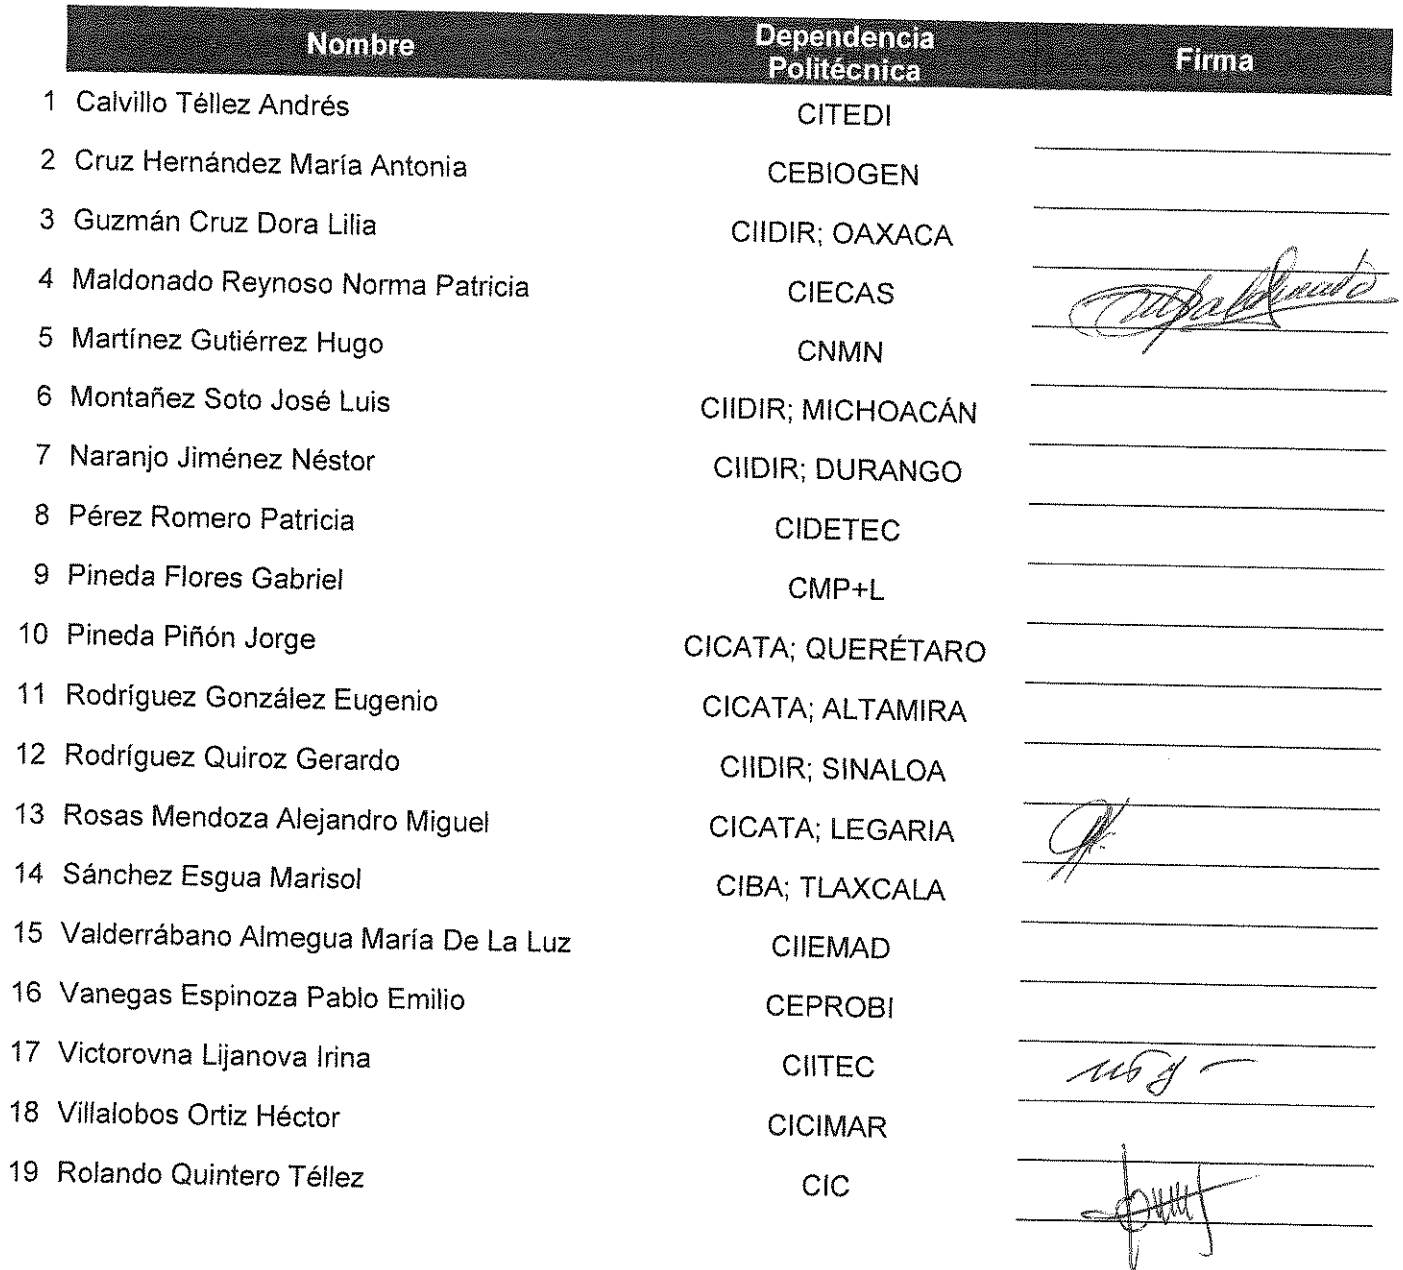 Nombre Dependencia Politécnica Firma
1 Calvillo Téllez Andrés CITEDI
2 Cruz Hernández María Antonia CEBIOGEN
3 Guzmán Cruz Dora Lilia CIIDIR; OAXACA
4 Maldonado Reynoso Norma Patricia CIECAS
5 Martínez Gutiérrez Hugo CNMN
6 Montañez Soto José Luis CIIDIR; MICHOACÁN
7 Naranjo Jiménez Néstor CIIDIR; DURANGO
8 Pérez Romero Patricia CIDETEC
9 Pineda Flores Gabriel CMP+L
10 Pineda Piñón Jorge CICATA; QUERÉTARO
11 Rodríguez González Eugenio CICATA; ALTAMIRA
12 Rodríguez Quiroz Gerardo CIIDIR; SINALOA
13 Rosas Mendoza Alejandro Miguel CICATA; LEGARIA
14 Sánchez Esgua Marisol CIBA; TLAXCALA
15 Valderrábano Almegua María De La Luz CIIEMAD
16 Vanegas Espinoza Pablo Emilio CEPROBI
17 Victorovna Lijanova Irina CIITEC
18 Villalobos Ortiz Héctor CICIMAR
19 Rolando Quintero Téllez CIC